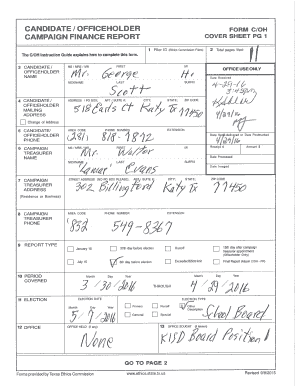 CANDIDATE / OFFICEHOLDER CAMPAIGN FINANCE REPORT
FORM C/OH
COVER SHEET PG 1
The C/OH Instruction Guide explains how to complete this form.
1 Filer ID (Ethics Commission Filers)
2 Total pages filed: 11
3 CANDIDATE / OFFICEHOLDER NAME
MS / MRS / MR FIRST MI
Mr. George H.
NICKNAME LAST SUFFIX
Scott
OFFICE USE ONLY
Date Received
4-29-16
4 CANDIDATE / OFFICEHOLDER MAILING ADDRESS
Change of Address
ADDRESS / PO BOX; APT / SUITE #; CITY; STATE; ZIP CODE
518 Katy Tx 77450
5 CANDIDATE / OFFICEHOLDER PHONE
AREA CODE PHONE NUMBER EXTENSION
(281) 818-7872
Date Hand-delivered or Date Postmarked
4/29/16
Receipt # Amount $
6 CAMPAIGN TREASURER NAME
MS / MRS / MR FIRST MI
Mr. Walter
NICKNAME LAST SUFFIX
"Lamar" Evans
Date Processed
Date Imaged
7 CAMPAIGN TREASURER ADDRESS
(Residence or Business)
STREET ADDRESS (NO PO BOX PLEASE); APT / SUITE #; CITY; STATE; ZIP CODE
302 Billingford Katy Tx 77450
8 CAMPAIGN TREASURER PHONE
AREA CODE PHONE NUMBER EXTENSION
(832) 549-8367
9 REPORT TYPE
January 15 30th day before election Runoff 15th day after campaign treasurer appointment (Officeholder Only)
July 15 8th day before election Exceeded $500 limit Final Report (Attach C/OH - FR)
10 PERIOD COVERED
Month Day Year Month Day Year
3/30/2016 THROUGH 4/29/2016
11 ELECTION
ELECTION DATE
Month Day Year
5/7/2016
ELECTION TYPE
Primary Runoff Other Description
General Special
School Board
12 OFFICE
OFFICE HELD (if any)
None
13 OFFICE SOUGHT (if known)
KISD Board Position 1
GO TO PAGE 2
Forms provided by Texas Ethics Commission www.ethics.state.tx.us